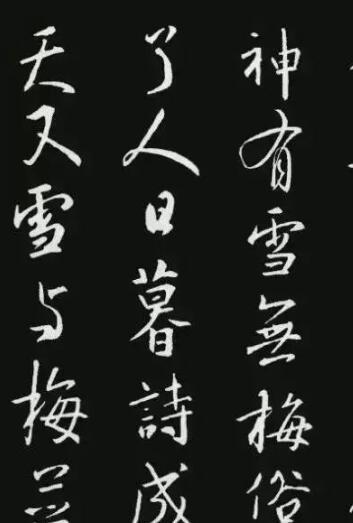 神有雪無梅俗
了人日暮詩成
天又雪与梅